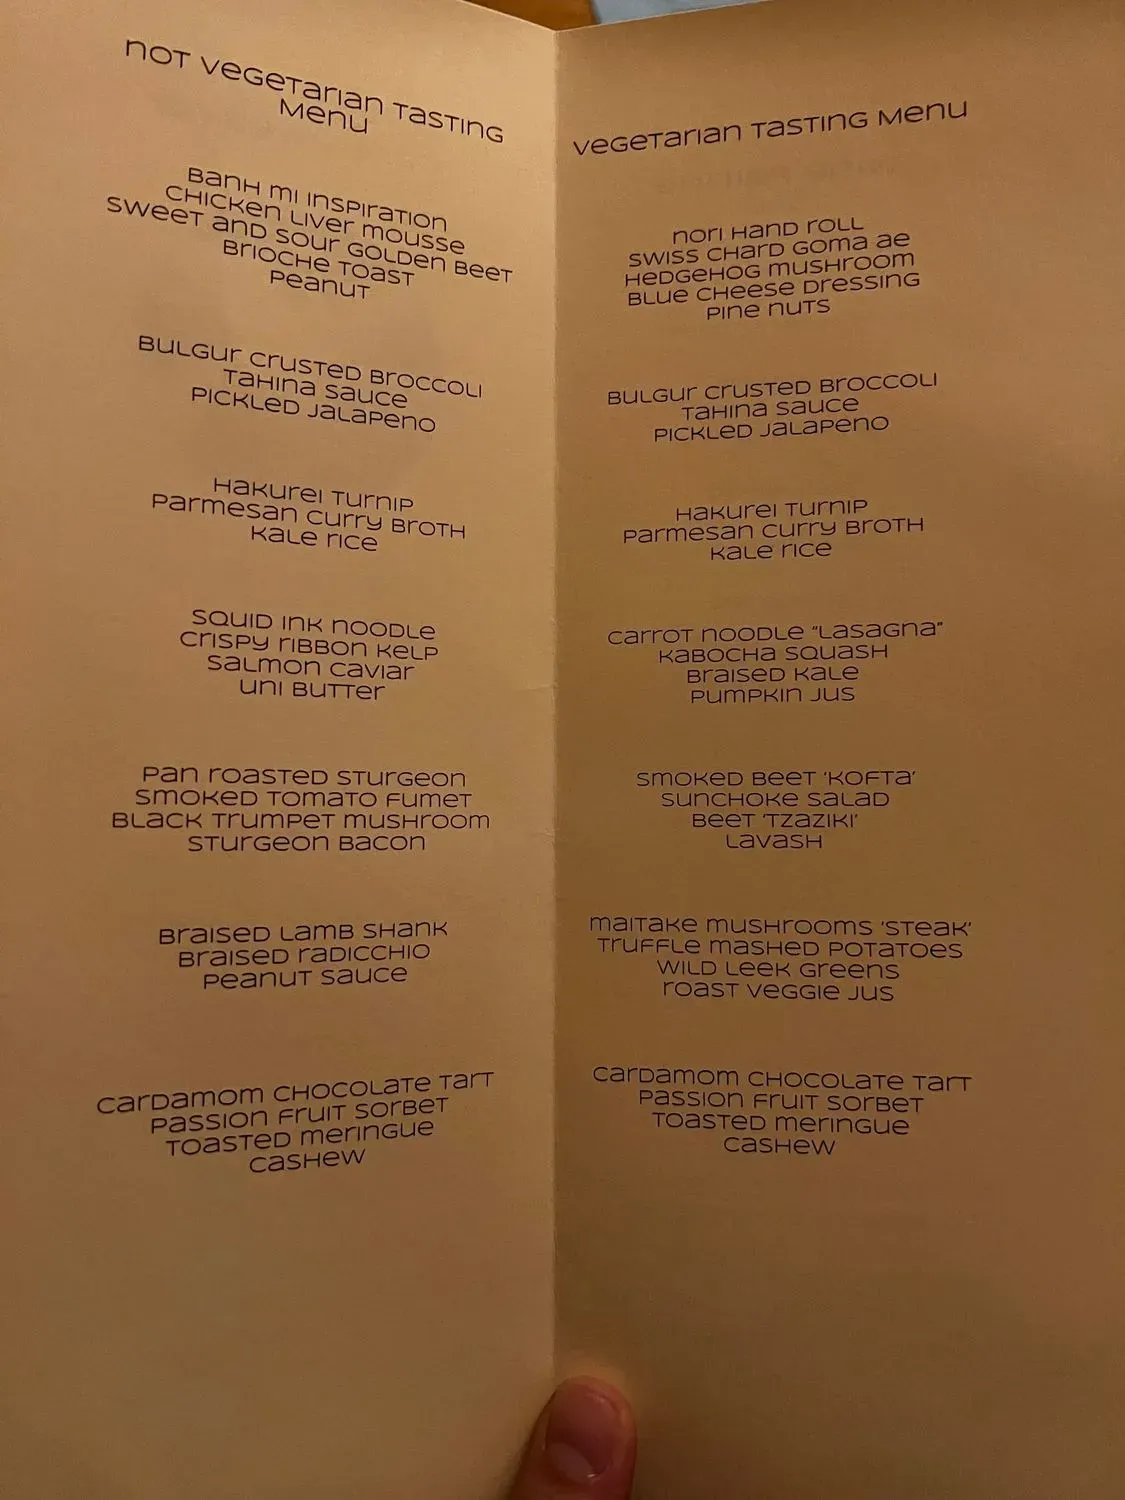 not vegetarian tasting
menu
Banh mi inspiration
chicken liver mousse
sweet and sour golden beet
brioche toast
peanut
bulgur crusted broccoli
tahina sauce
pickled jalapeno
hakurei turnip
parmesan curry broth
kale rice
squid ink noodle
crispy ribbon kelp
salmon caviar
uni butter
pan roasted sturgeon
smoked tomato fumet
black trumpet mushroom
sturgeon bacon
braised lamb shank
braised radicchio
peanut sauce
cardamom chocolate tart
passion fruit sorbet
toasted meringue
cashew
vegetarian tasting menu
nori hand roll
swiss chard goma ae
hedgehog mushroom
blue cheese dressing
pine nuts
bulgur crusted broccoli
tahina sauce
pickled jalapeno
hakurei turnip
parmesan curry broth
kale rice
carrot noodle “lasagna”
kabocha squash
braised kale
pumpkin jus
smoked beet ‘kofta’
sunchoke salad
beet ‘tzaziki’
lavash
maitake mushrooms ‘steak’
truffle mashed potatoes
wild leek greens
roast veggie jus
cardamom chocolate tart
passion fruit sorbet
toasted meringue
cashew